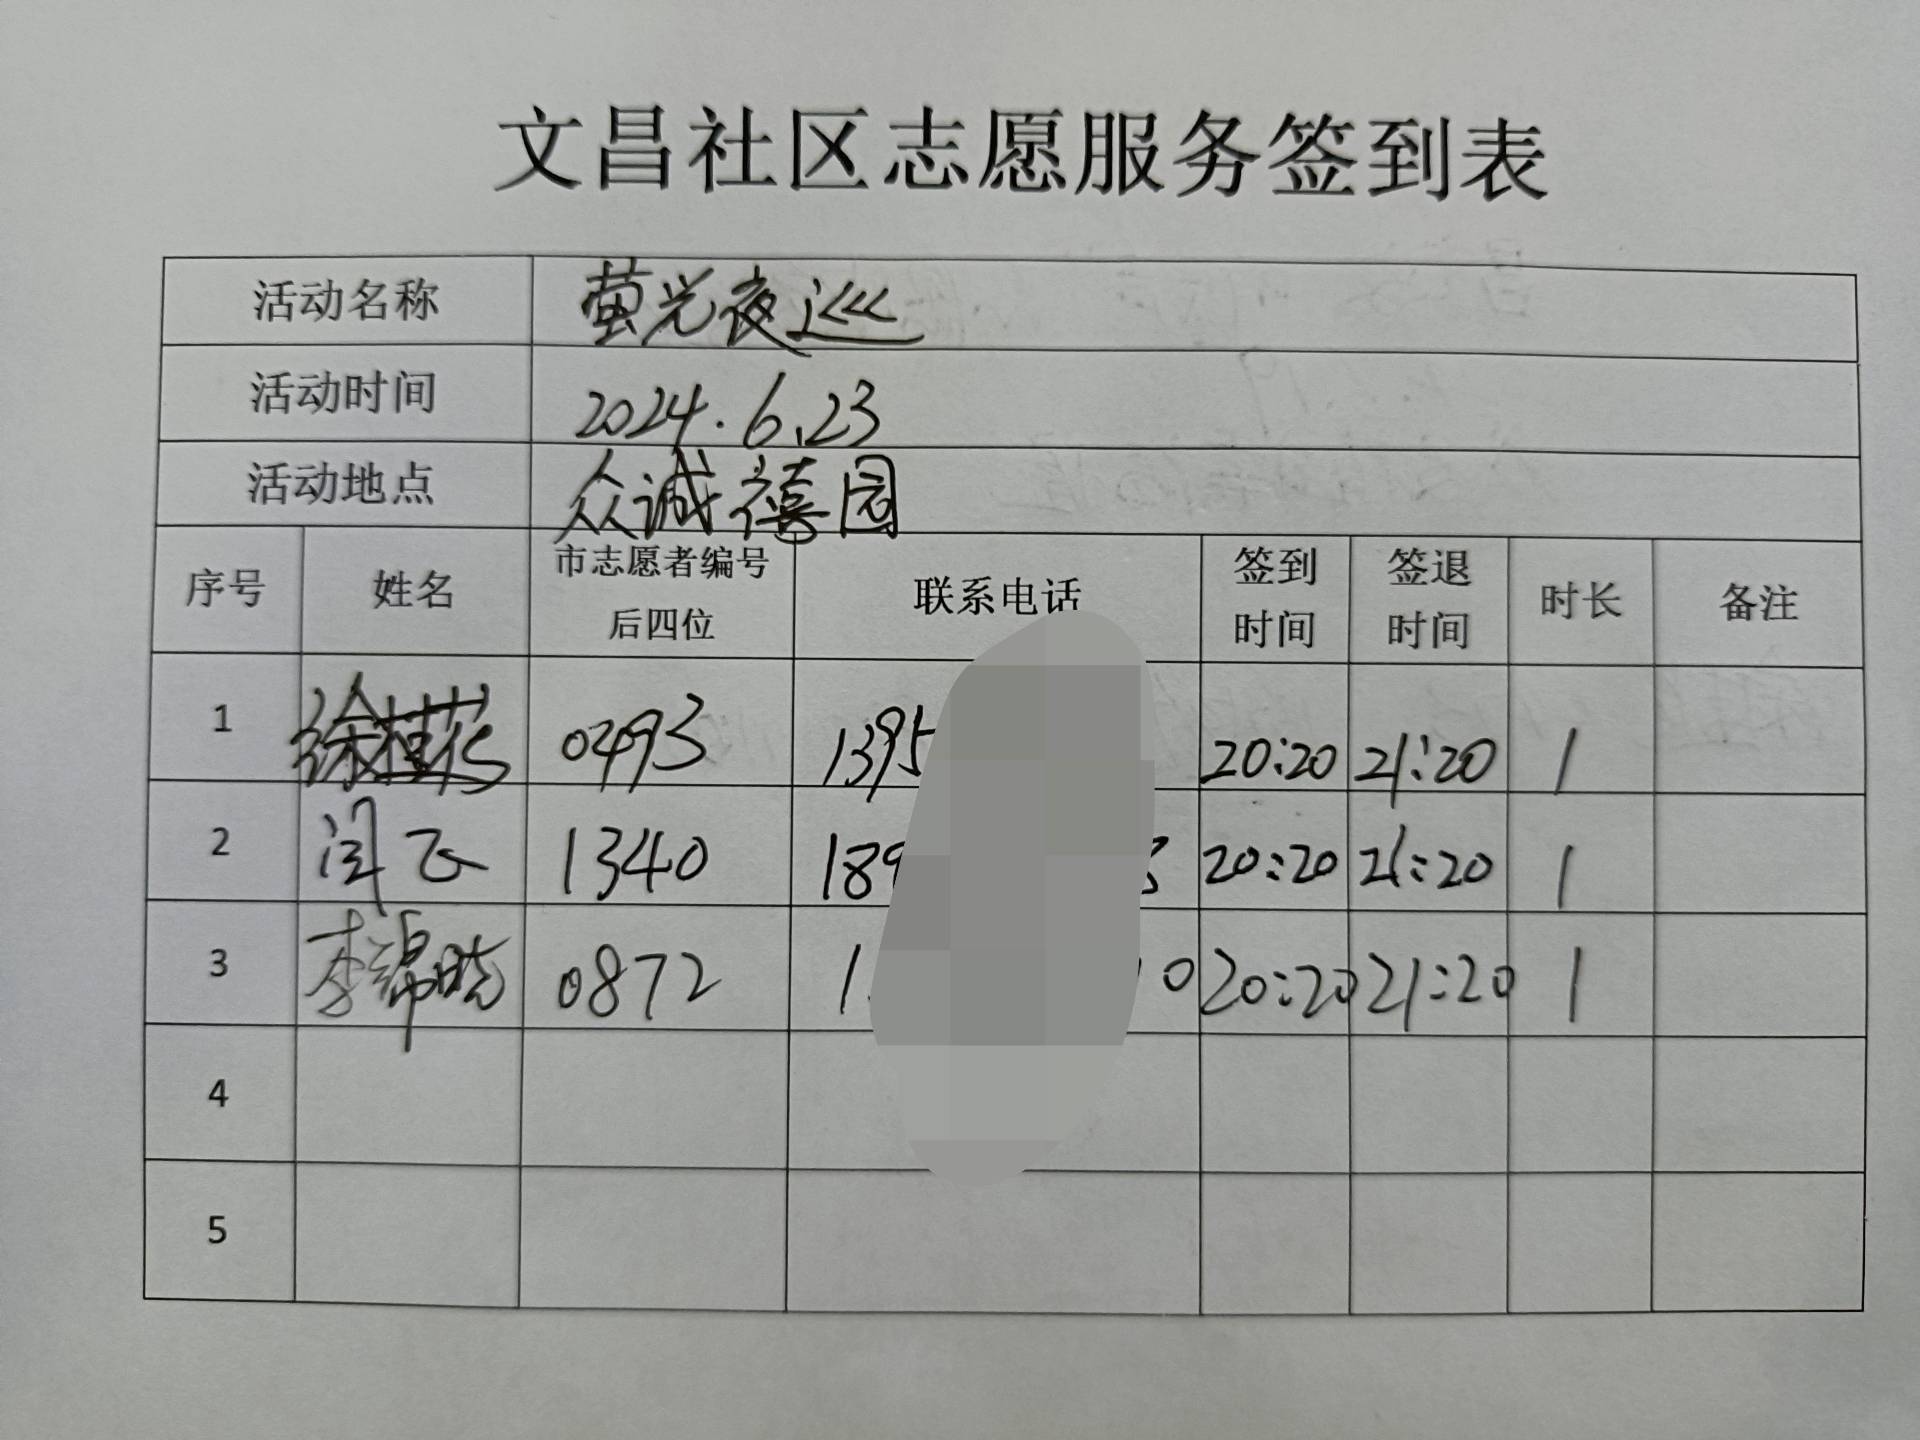 文昌社区志愿服务签到表
活动名称 萤光夜巡
活动时间 2024.6.23
活动地点 众诚禧园
序号 姓名 市志愿者编号后四位 联系电话 签到时间 签退时间 时长 备注
1 徐桂花 0493 1395 20:20 21:20 1
2 闫飞 1340 189 20:20 21:20 1
3 李锦晓 0872 1 0 20:20 21:20 1
4
5